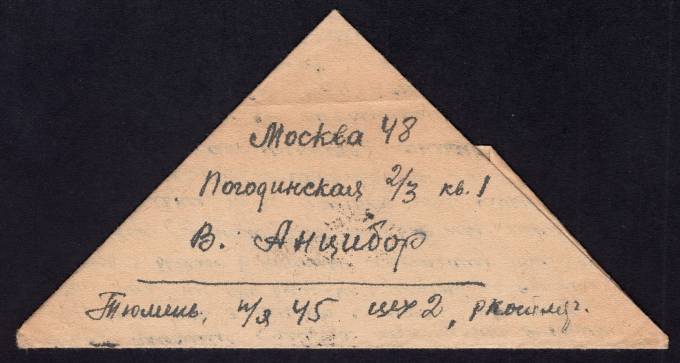 Москва 48
Погодинская 2/3 кв. 1
В. Анцибор
Тюмень, п/я 45 цех 2,